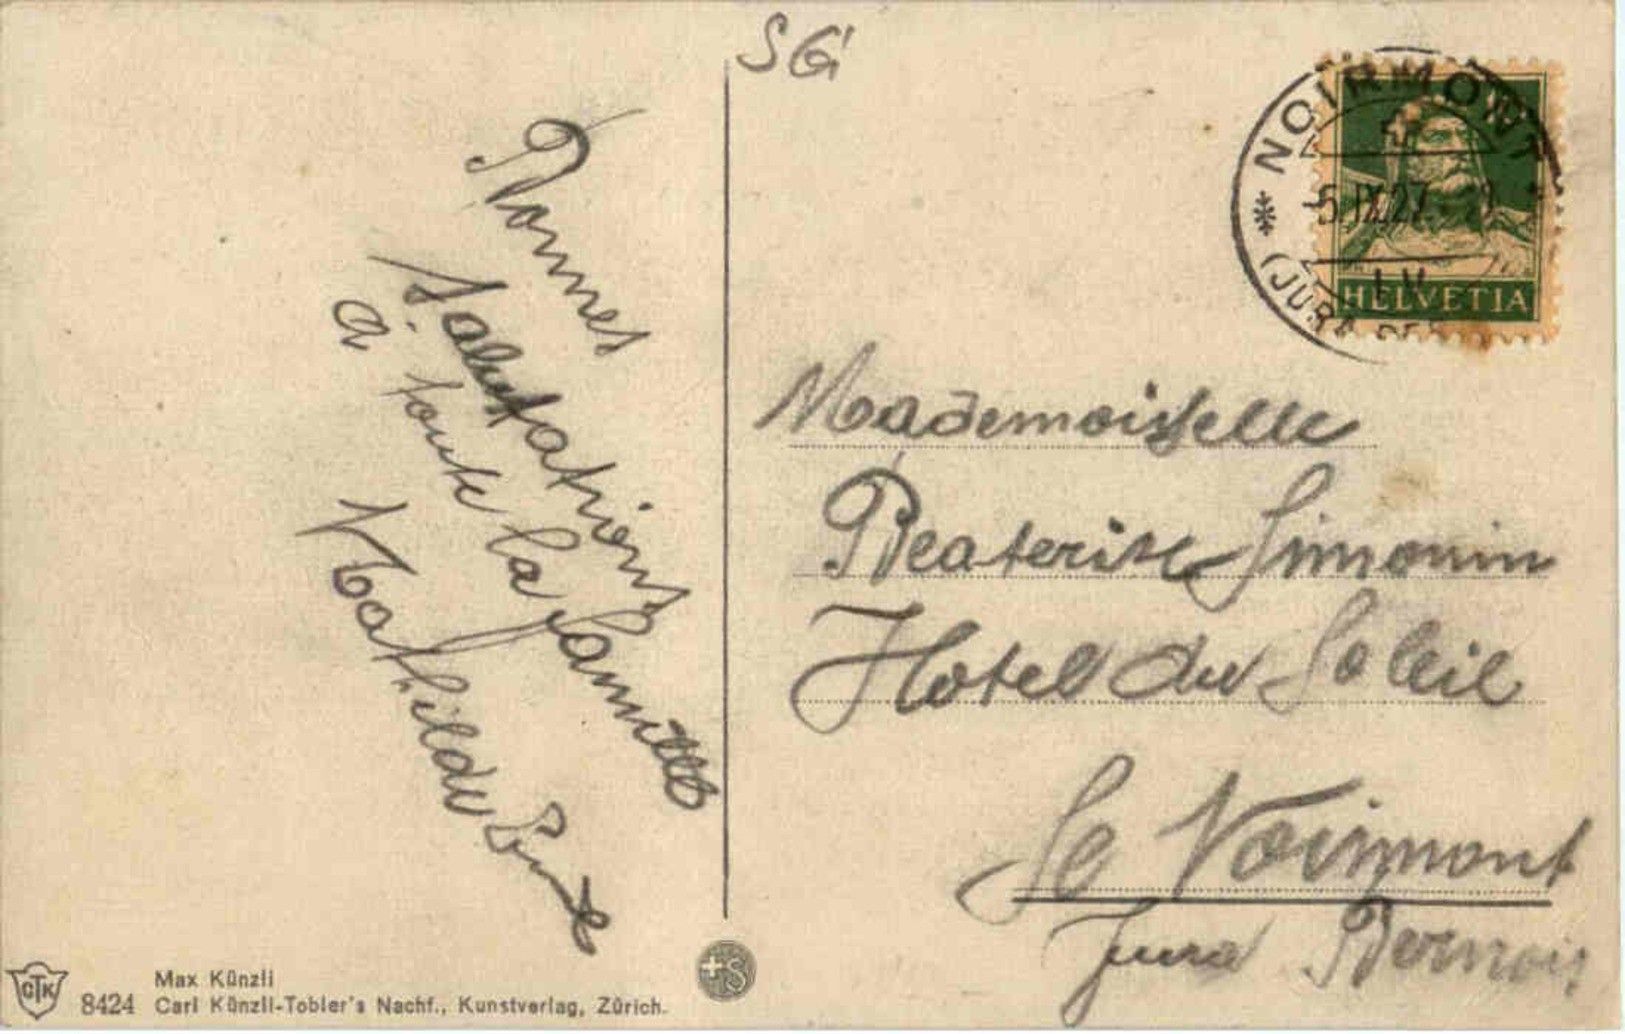 SG
NOIRMONT
-5.IX.27
(JURA BER
HELVETIA
Bonnes
Salutations
à toute la famille
Mathilde
Mademoiselle
Beaterise Simonin
Hotel du Soleil
Le Noirmont
Jura Bernois
CTK
8424
Max Künzli
Carl Künzli-Tobler's Nachf., Kunstverlag, Zürich.
+S